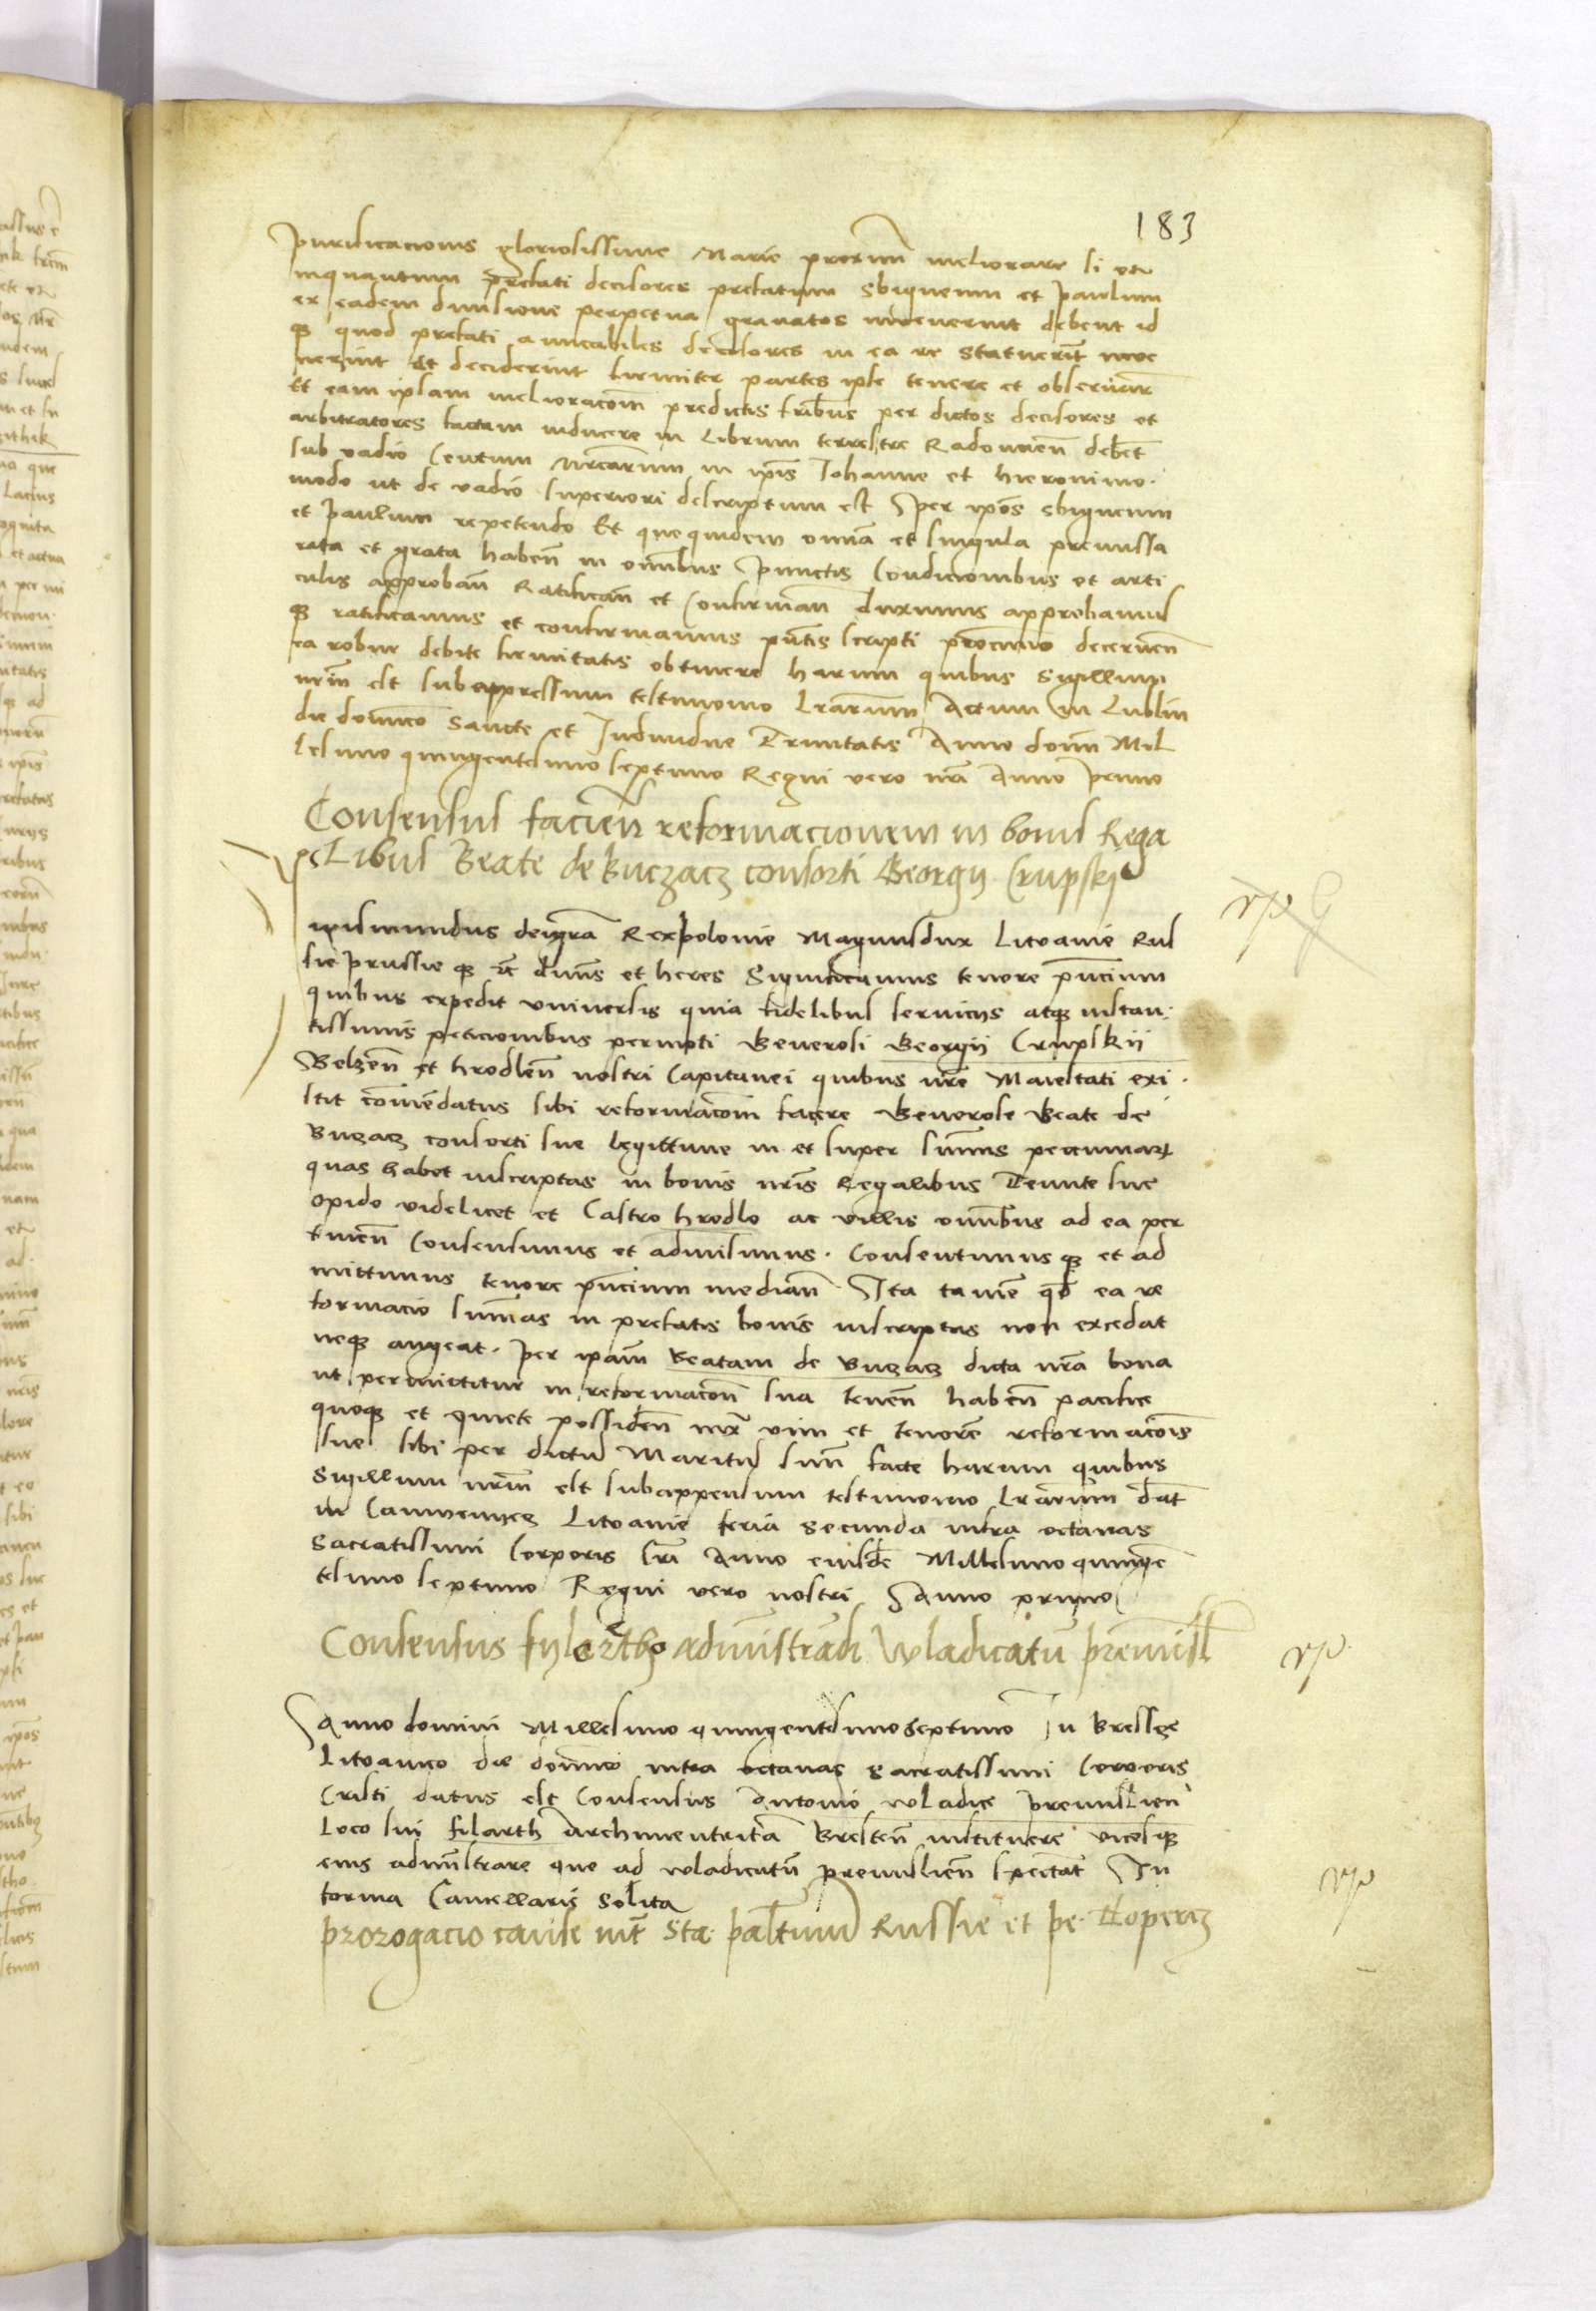 183
purificacionis gloriosissime Marie proximu meliorare si et
inquantum prefati decisores prefatum Sbigneum et paulum
ex eadem divisione perpetua gravatos invenerint debent id
qz quod prefati amicabiles decisores in ea re statuerit inve
nerint Et deciderint firmiter partes ipse tenere et observare
Et eam ipsam melioracom predictis fribus per dictos decisores et
arbitratores factam inducere in Librum terrestre Radomien debet
sub vadio Centum mrcarum in ipis Iohanne et hieronimo
modo ut de vadio superiori descriptum est per ipos sbigneum
et paulum repetendo Et que quidem omia et singula premissa
rata et grata haben in omibus punctis Condicionibus et arti
culis approban Ratifican et Confirman duximus approbamus
qz ratificamus et confirmamus pntis scripti procinio decernen
ea robur debite firmitatis obtinere harum quibus Sigillum
nrm est subappressum testimonio Lrarum Actum in Lublin
die dominico Sancte et Individue Trinitatis Anno domi Mil
lesimo quingentesimo septimo Regni vero nri Anno primo
Consensus facien reformacionem in bonis Rega
Libus Beate de Buczacz consorti Georgii Crupski
igismundus dei gra Rex polonie Magnus dux Litvanie Rus
sie prussie qz zc dnns et heres Significamus tenore pncium
quibus expedit universis quia fidelibus serviciis atqz instan
tissimis peticionibus permoti Generosi Georgii Crupskii
Belzen et hrodlen nostri Capitanei quibus nre Maiestati exi
stit comendatus sibi reformacom facere Generose Beate de
Buczacz consorti sue legittime in et super summis pecuniarum
quas habet inscriptas in bonis nris Regalibus Tenute sue
opido videlicet et Castro hrodlo ac villis omibus ad ea per
tinen Consensimus et admisimus. Consentimus qz et ad
mittimus tenore pncium median Ita tame qd ea re
formacio summas in prefatis bonis inscriptas non excedat
neqz augeat. per ipam Beatam de Buczacz dicta nra bona
ut permittitur in reformacom sua tenen haben pacifice
quoqz et quiete possiden iuxta vim et tenore reformacois
sue sibi per dictu Maritu suu facte harum quibus
Sigillum nrm est subappensum testimonio Lrarum dat
in Camyenyecz Litvanie feria secunda infra octavas
sacratissimi Corporis Cri Anno eiusde Millesimo quinge
tesimo septimo Regni vero nostri Anno primo
Consensus fylartho administrandi wladicatu premisl
Anno domini Millesimo quingentesimo septimo In Bressze
Litvanico die dominico infra octavas sacratissimi Corporis
Cristi datus est Consensus Antonio wladice premislien
Loco sui filarth Archimentrita Bresten instituere vicesqz
eius administrare que ad wladicatu premislien spectat In
forma Cancellaris solita
prorogacio cause int Sta. paltinum Russie et pe. Coperz